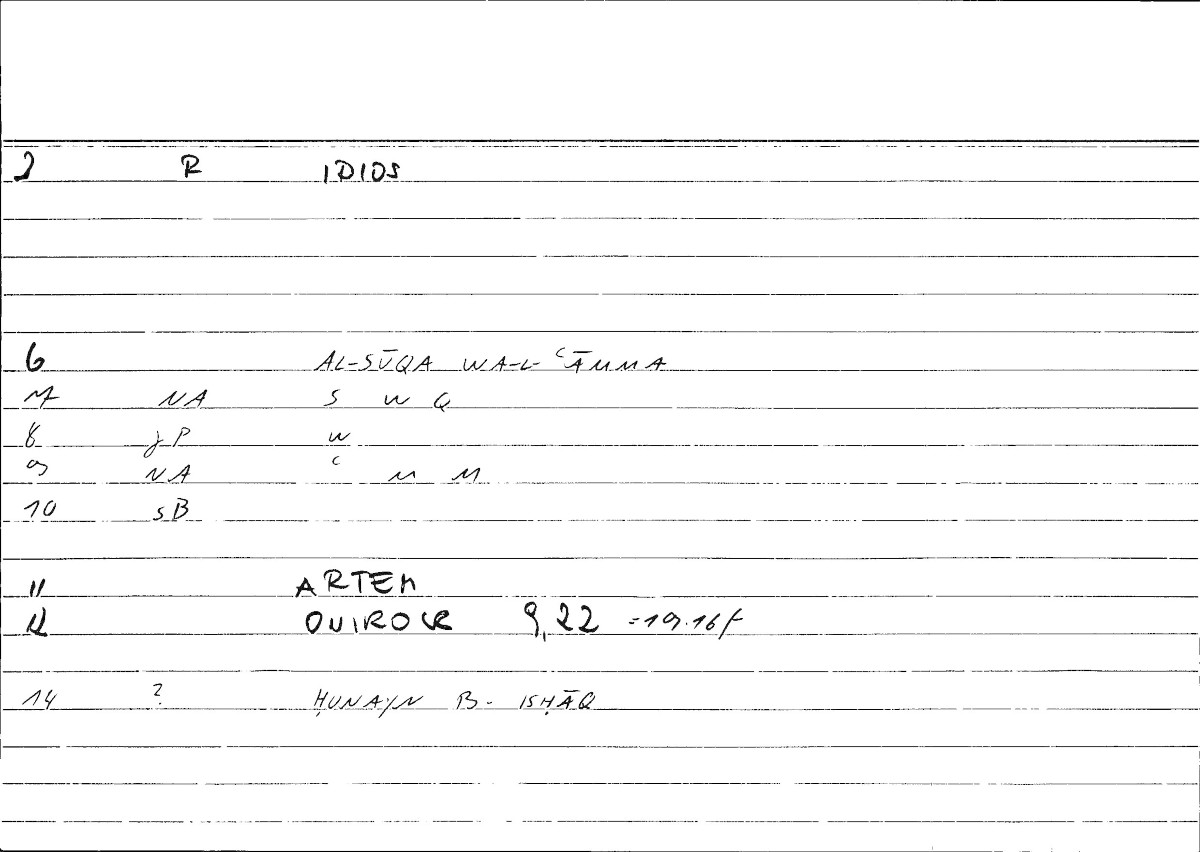 2 R IDIOS
6 AL-SŪQA WA-L-ʿĀMMA
7 NA S W Q
8 jP W
9 NA ʿ M M
10 sB
11 ARTEM
12 OUIROCR 9,22 =19.16f
14 ? ḤUNAYN B. ISḤĀQ